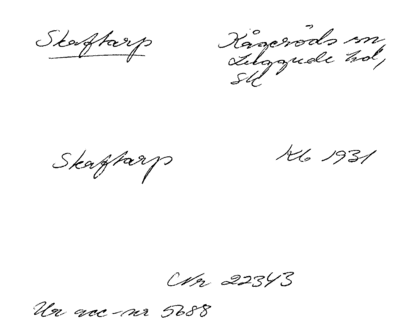 Skaftarp
Kågeröds sn,
Luggude hd,
Sk
Skaftarp
Kb 1931
Nr 22343
Ur acc-nr 5688